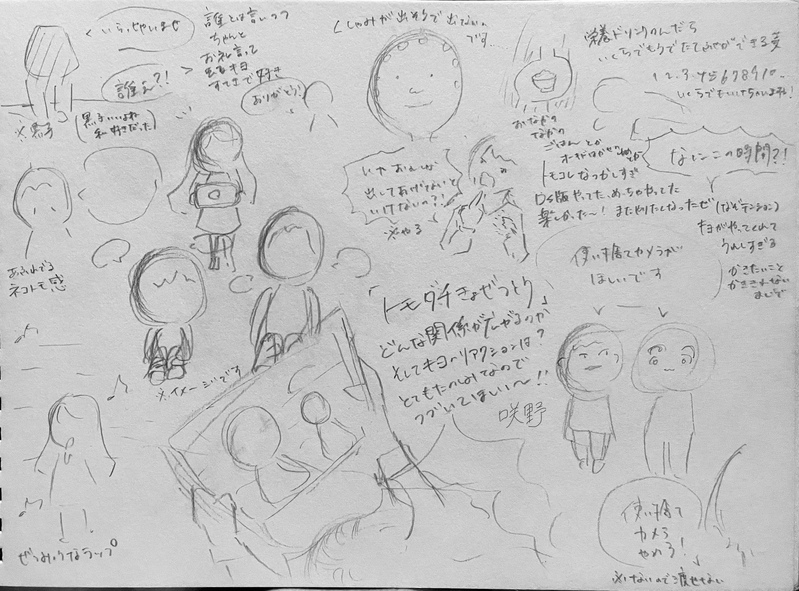 いらっしゃいませ
誰とは言いつつ
ちゃんと
お礼言って
出るキヨ
すてきで好き
誰よ?!
ありがとう!
※黒子
(黒子いいよね
私好きだった)
くしゃみが出そうで出ないの
です…
栄養ドリンクのんだら
いくらでもうでたてふせができる夢
いくらでもいけちゃいますよね!
おなかの
なかの
ごはんとか
なにこの時間?!
いや おれが
出してあげないと
いけないの?!
※やる
トモコレなつかしすぎ
DS版やってた めっちゃやってた
楽しかった〜! またやりたくなったぜ
(なぞテンション)
キヨがやってくれて
うれしすぎる
かきたいこと
かききれない
まじで
あふれでる
ネコトモ感
使い捨てカメラが
ほしいです
「トモダチきょぜつとり」
どんな関係がでんやるのか
そしてキヨのリアクションは?
とてもたのしみなので
つづいてほしい〜!!
咲野
※イメージです
ぜつみょうなラップ
使い捨て
カメラ
やめろ!
※ないので渡せない